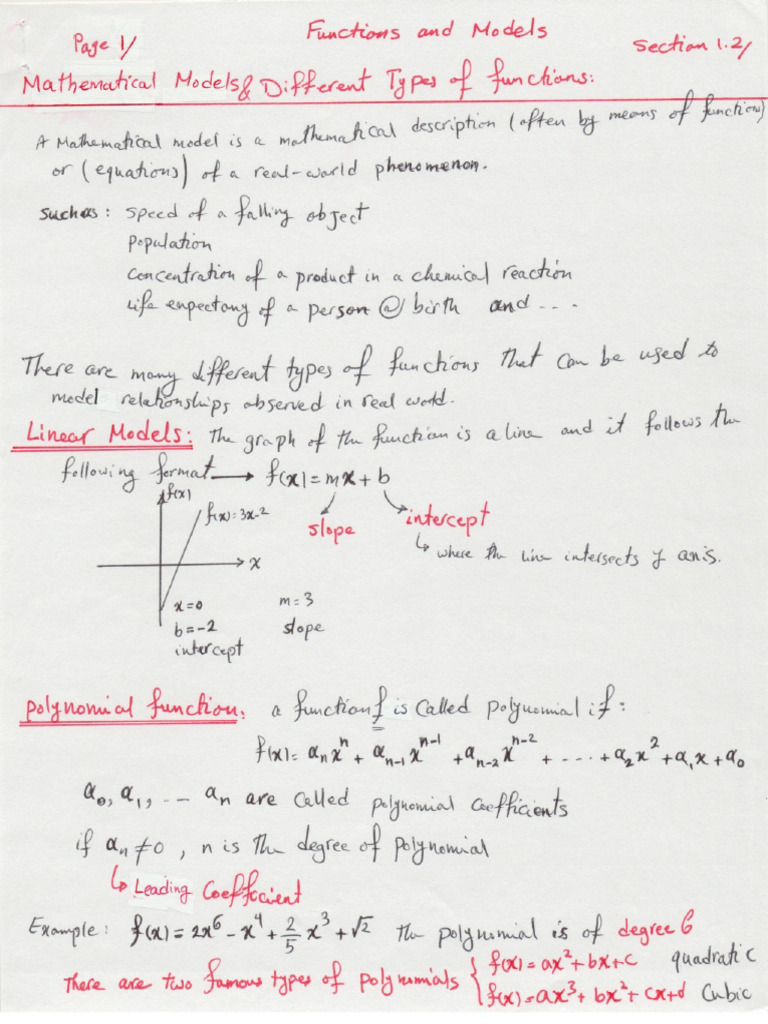 Functions and Models
Page 1/
Section 1.2/
Mathematical Models & Different Types of functions:
A Mathematical model is a mathematical description (often by means of function)
or (equations) of a real-world phenomenon.
such as: speed of a falling object
population
concentration of a product in a chemical reaction
Life expectany of a person @ birth and ....
There are many different types of functions that can be used to
model relationships observed in real world.
Linear Models: The graph of the function is a line and it follows the
following format → f(x) = mx + b
slope
intercept
↳ where the line intersects y axis.
f(x)
f(x) = 3x-2
x
x = 0
b = -2
intercept
m = 3
slope
Polynomial function: a function f is called polynomial if:
f(x) = aₙxⁿ + aₙ₋₁xⁿ⁻¹ + aₙ₋₂xⁿ⁻² + .... + a₂x² + a₁x + a₀
a₀, a₁, ... aₙ are called polynomial coefficients
if aₙ ≠ 0, n is the degree of polynomial
↳ Leading Coefficient
Example: f(x) = 2x⁶ - x⁴ + 2/5 x³ + √2 the polynomial is of degree 6
There are two famous types of polynomials { f(x) = ax² + bx + c quadratic
f(x) = ax³ + bx² + cx + d Cubic